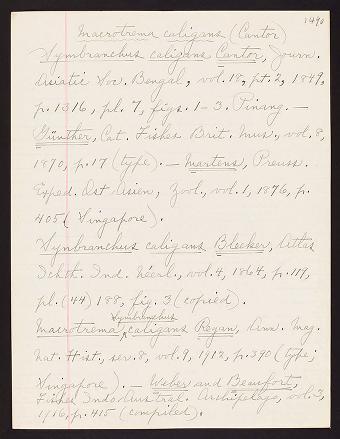 1490
Macrotrema caligans (Cantor)
Symbranchus caligans Cantor, Journ.
Asiatic Soc. Bengal, vol. 18, pt. 2, 1849,
p. 1316, pl. 7, figs. 1-3. Pinang. —
Günther, Cat. Fishes Brit. Mus., vol. 8,
1870, p. 17 (type). — Martens, Preuss.
Exped. Ost Asien, Zool., vol. 1, 1876, p.
405 (Singapore).
Synbranchus caligans Bleeker, Atlas
Ichth. Ind. Néerl., vol. 4, 1864, p. 119,
pl. (44) 188, fig. 3 (copied).
Symbranchus
Macrotrema ^ caligans Regan, Ann. Mag.
Nat. Hist., ser. 8, vol. 9, 1912, p. 390 (type;
Singapore). — Weber and Beaufort,
Fishes Indo Austral. Archipelago, vol. 3,
1916, p. 415 (compiled).